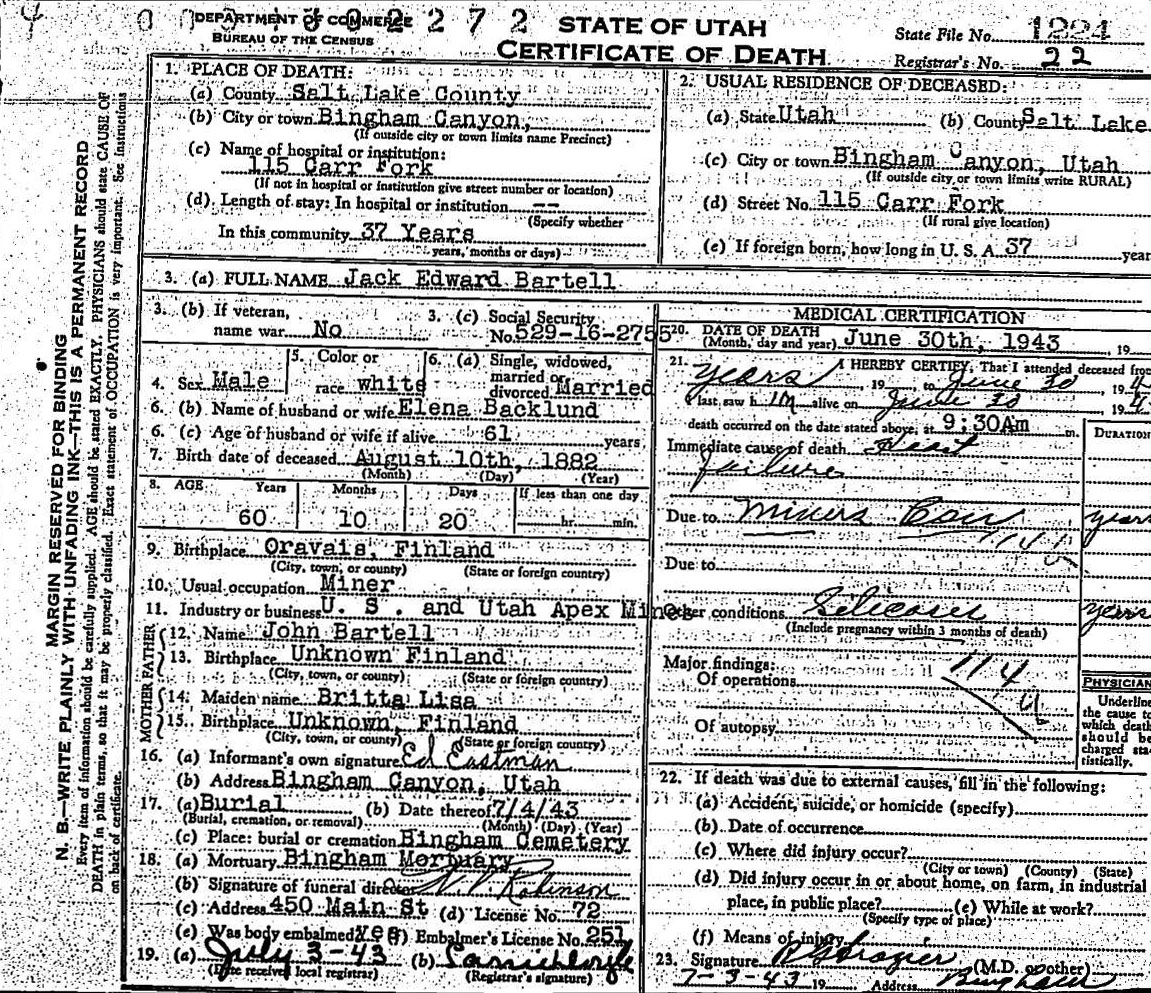 DEPARTMENT OF COMMERCE
BUREAU OF THE CENSUS
2 2 7 2
STATE OF UTAH
CERTIFICATE OF DEATH
State File No. 1224
Registrar's No. 22
MARGIN RESERVED FOR BINDING
N. B.—WRITE PLAINLY WITH UNFADING INK—THIS IS A PERMANENT RECORD
Every item of information should be carefully supplied. AGE should be stated EXACTLY. PHYSICIANS should state CAUSE OF
DEATH in plain terms, so that it may be properly classified. Exact statement of OCCUPATION is very important. See instructions
on back of certificate.
1. PLACE OF DEATH:
(a) County Salt Lake County
(b) City or town Bingham Canyon,
(If outside city or town limits name Precinct)
(c) Name of hospital or institution:
115 Carr Fork
(If not in hospital or institution give street number or location)
(d) Length of stay: In hospital or institution --
(Specify whether
In this community 37 Years
years, months or days)
2. USUAL RESIDENCE OF DECEASED:
(a) State Utah (b) County Salt Lake
(c) City or town Bingham Canyon, Utah
(If outside city or town limits write RURAL)
(d) Street No. 115 Carr Fork
(If rural give location)
(e) If foreign born, how long in U. S. A. 37 year
3. (a) FULL NAME Jack Edward Bartell
3. (b) If veteran,
name war No
3. (c) Social Security
No. 529-16-2755
4. Sex Male
5. Color or
race white
6. (a) Single, widowed,
married or
divorced Married
6. (b) Name of husband or wife Elena Backlund
6. (c) Age of husband or wife if alive 61 years
7. Birth date of deceased August 10th, 1882
(Month) (Day) (Year)
8. AGE Years Months Days If less than one day
60 10 20 hr. min.
9. Birthplace Oravais, Finland
(City, town, or county) (State or foreign country)
10. Usual occupation Miner
11. Industry or business U. S. and Utah Apex Mines
FATHER
12. Name John Bartell
13. Birthplace Unknown Finland
(City, town, or county) (State or foreign country)
MOTHER
14. Maiden name Britta Lisa
15. Birthplace Unknown, Finland
(City, town, or county) (State or foreign country)
16. (a) Informant's own signature Ed Eastman
(b) Address Bingham Canyon, Utah
17. (a) Burial (b) Date thereof 7/4/43
(Burial, cremation, or removal) (Month) (Day) (Year)
(c) Place: burial or cremation Bingham Cemetery
18. (a) Mortuary Bingham Mortuary
(b) Signature of funeral director Robinson
(c) Address 450 Main St (d) License No. 72
(e) Was body embalmed? yes (f) Embalmer's License No. 251
19. (a) July 3-43 (b)
(Date received local registrar) (Registrar's signature)
MEDICAL CERTIFICATION
20. DATE OF DEATH
(Month, day and year) June 30th, 1943, 19
21. I HEREBY CERTIFY, That I attended deceased from
years 19 to June 30 19 4
I last saw h im alive on June 30 19 4
death occurred on the date stated above, at 9:30Am m.
DURATION
Immediate cause of death Heart
failure
Due to Miners Con years
Due to
Other conditions Silicosis years
(Include pregnancy within 3 months of death)
Major findings:
Of operations
114
Of autopsy
PHYSICIAN
Underline
the cause to
which death
should be
charged sta-
tistically.
22. If death was due to external causes, fill in the following:
(a) Accident, suicide, or homicide (specify)
(b) Date of occurrence
(c) Where did injury occur?
(City or town) (County) (State)
(d) Did injury occur in or about home, on farm, in industrial
place, in public place? (e) While at work?
(Specify type of place)
(f) Means of injury
23. Signature Frazier (M.D. or other)
7-3-43 19 Address Bingham